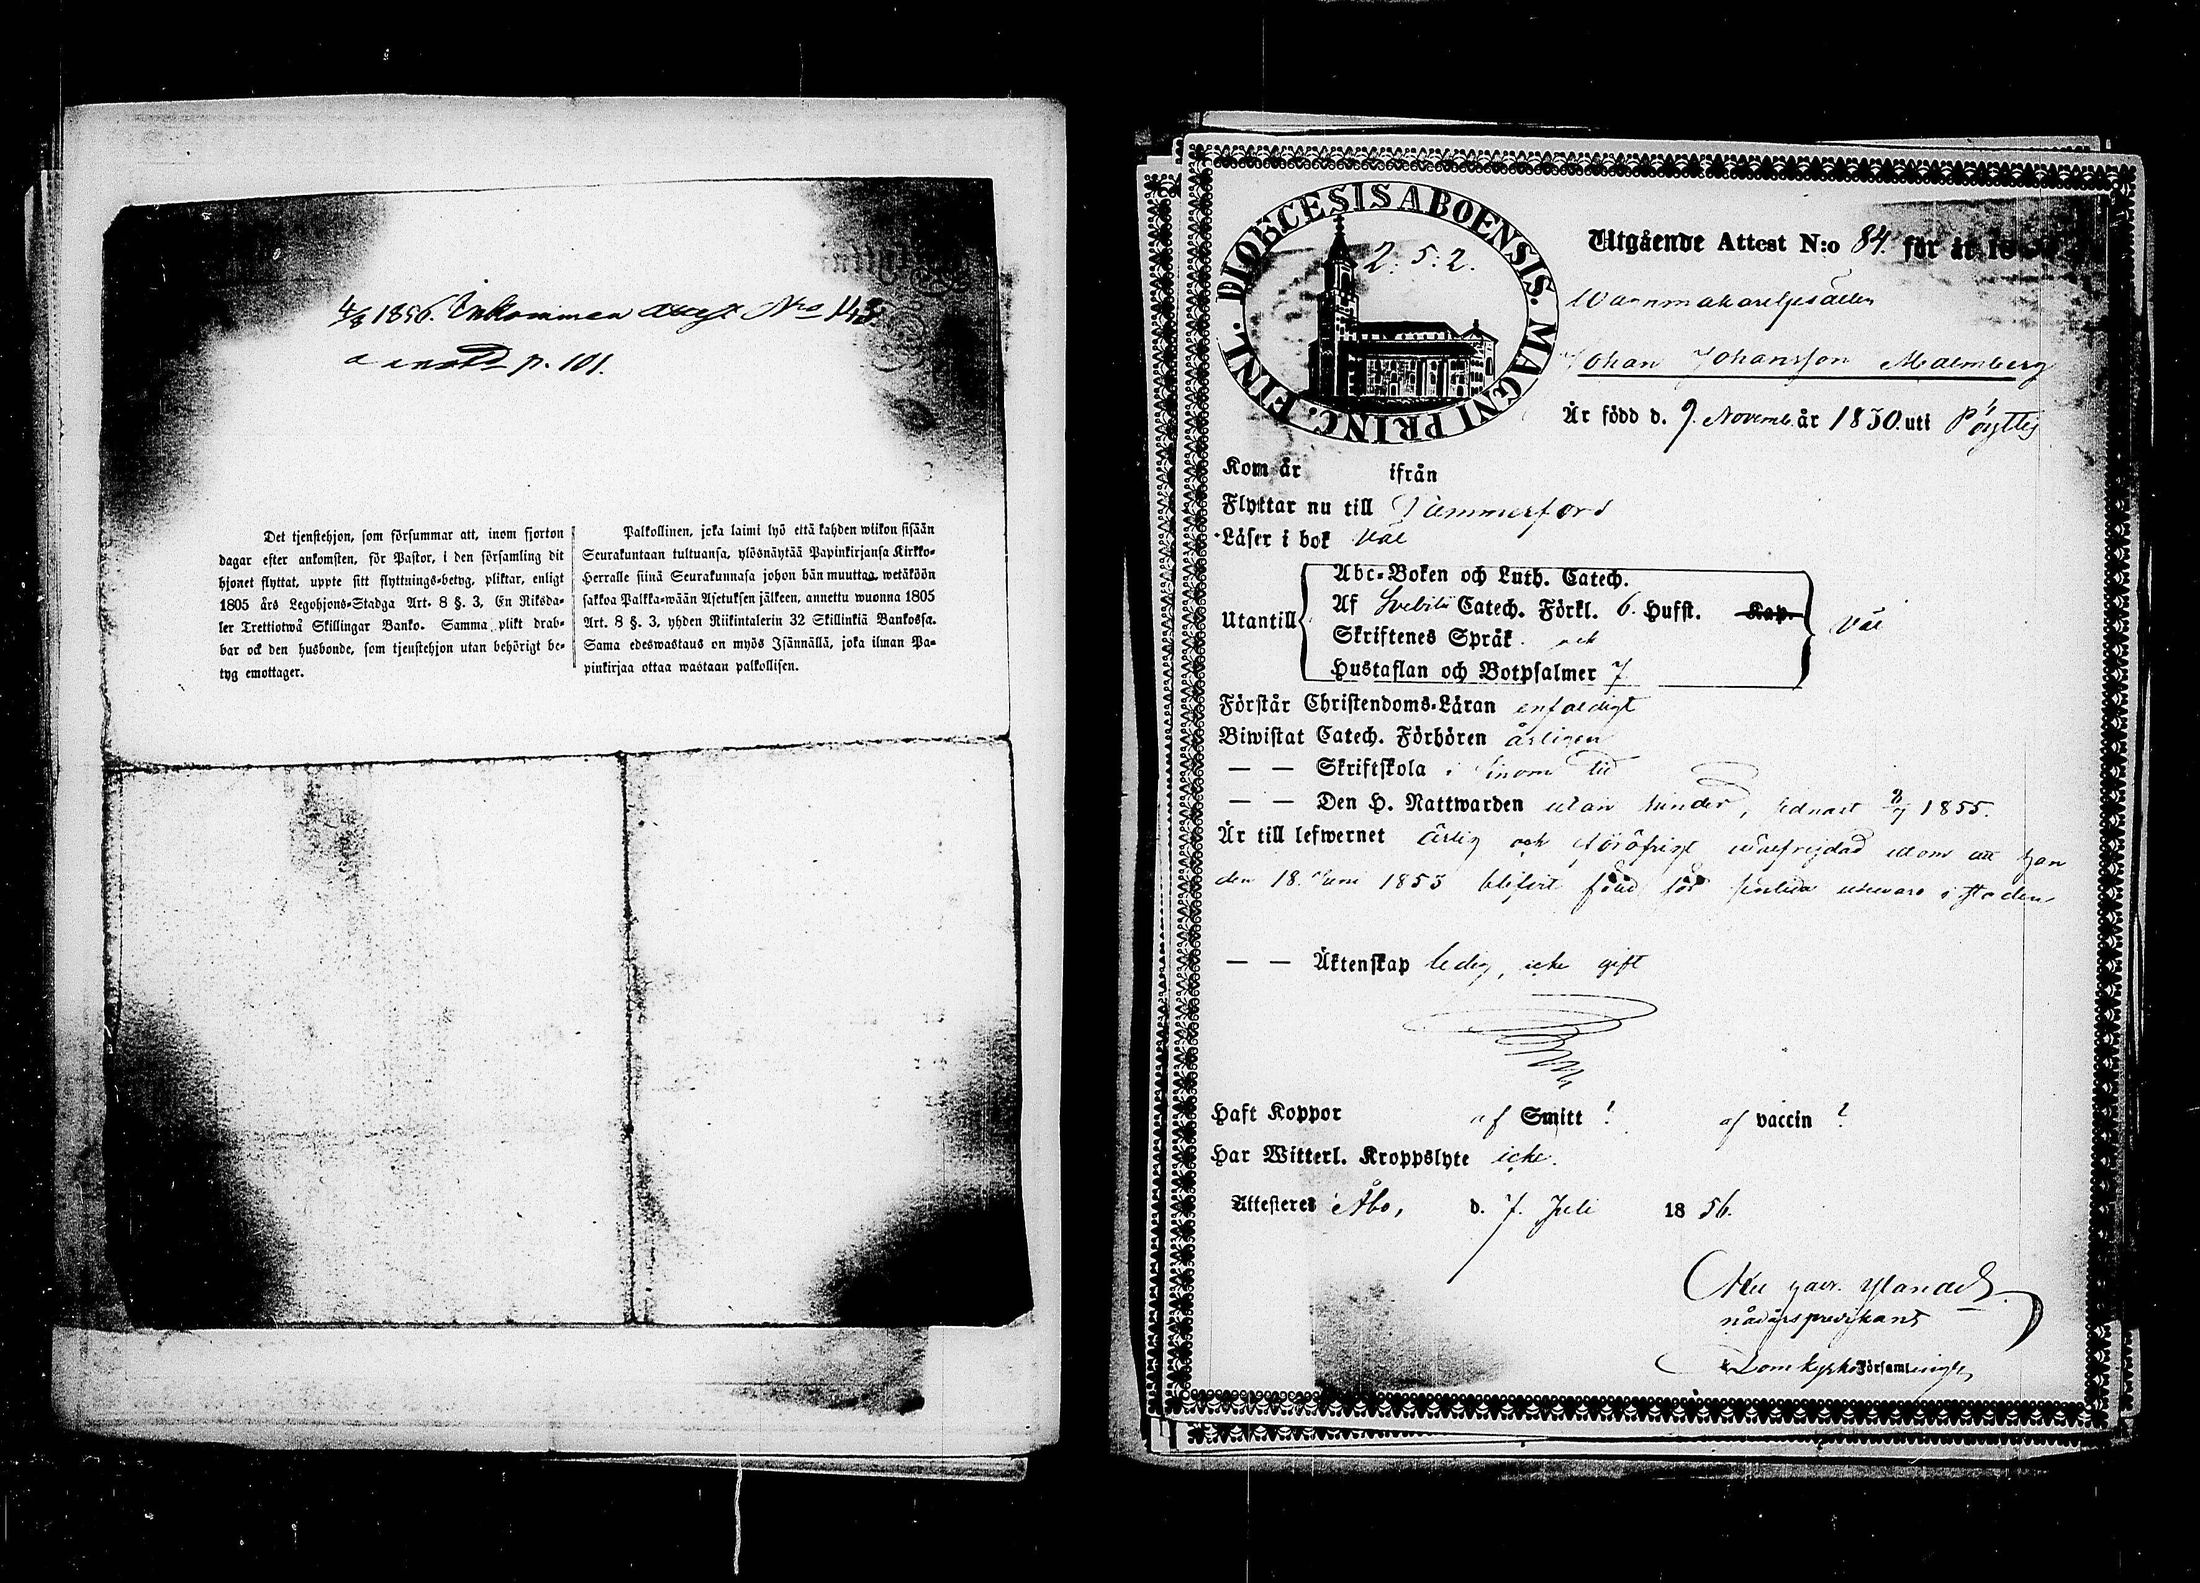 4/8 1856. Inkommen attest No 143.
p. 101.
Det tjenstehjon, som försummar att, inom fjorton
dagar efter ankomsten, för Pastor, i den församling dit
hjonet flyttat, uppte sitt flyttnings-betyg, pliktar, enligt
1805 års Legohjons-Stadga Art. 8 §. 3, En Riksda-
ler Trettiotwå Skillingar Banko. Samma plikt drab-
bar ock den husbonde, som tjenstehjon utan behörigt be-
tyg emottager.
Palkollinen, joka laimi lyö että kahden wiikon sisään
Seurakuntaan tultuansa, ylösnäytää Papinkirjansa Kirkko-
Herralle siinä Seurakunnasa johon hän muuttaa, wetäköön
sakkoa Palkka-wään Asetuksen jälkeen, annettu wuonna 1805
Art. 8 §. 3, yhden Riikintalerin 32 Skillinkiä Bankossa.
Sama edeswastaus on myös Isännällä, joka ilman Pa-
pinkirjaa ottaa wastaan palkollisen.
DIOECESIS ABOENSIS. MAGNI PRINC. FINL.
2. 5. 2.
Utgående Attest N:o 84. för år 18
Wannmakaregesällen
Johan Johansson Malmberg
Är född d. 9. Novemb. år 1830. uti Pöyttis
Kom år ifrån
Flyttar nu till Tammerfors
Läser i bok väl
Utantill
Abc-Boken och Luth. Catech.
Af Svebilii Catech. Förkl. 6. Hufst. Kap.
Skriftenes Språk och
Hustaflan och Botpsalmer 7
väl
Förstår Christendoms-Läran enfaldigt
Biwistat Catech. Förhören årligen
— — Skriftskola i sinom tid
— — Den H. Nattwarden utan hinder, sednast 1855.
Är till lefwernet ärlig och föröfrigt wälfrejdad utom att han
den 18. Juni 1853 blifvit fäld för i staden
— — Äktenskap ledig, icke gift
Haft Koppor af Smitt ! af vaccin !
Har Witterl. Kroppslyte icke.
Attesteres Åbo, d. 7. Juli 1856.
nådårspredikant
Domkyrko Församlings